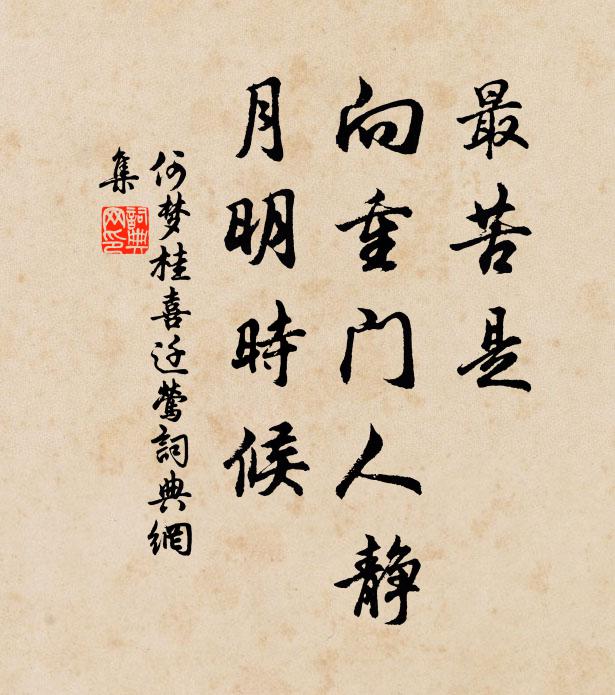 最苦是
向重门人静
月明時候
何梦桂喜迁莺詞典網
集
詞典
网印